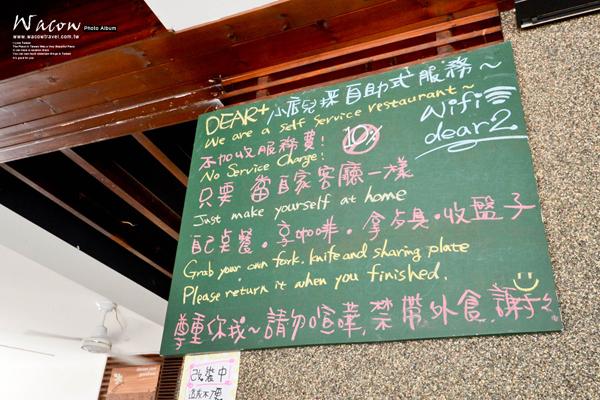 Wacow Photo Album
www.wacowtravel.com.tw
DEAR+ 小店兒採自助式服務~
We are a self service restaurant~
Wifi
dear2
不加收服務費! 10%
No Service Charge!
只要當自家客廳一樣
Just make yourself at home
自己桌餐·享咖啡·拿勺具·收盤子
Grab your own fork, knife and sharing plate
Please return it when you finished.
尊重你我~請勿喧嘩,禁帶外食,謝謝
改裝中